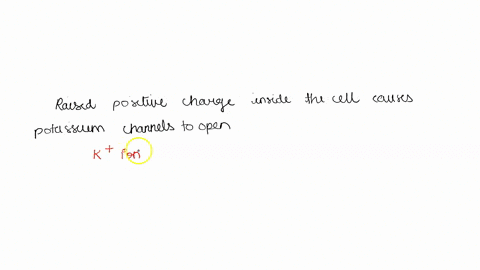 Raised positive charge inside the cell causes
potassium channels to open
K+